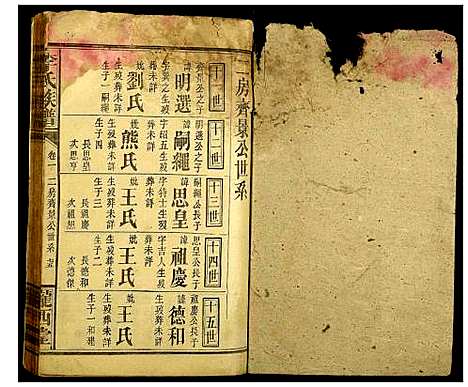 二房齊景公世系
十一世
齊景公之子
諱明選
字冀之生歿
葬未詳
妣劉氏
生歿葬未詳
生子一嗣繩
十二世
明選公之子
諱嗣繩
字昭五生歿
葬未詳
妣熊氏
生歿葬未詳
生子四
長思皇
次思亨
十三世
嗣繩公長子
諱思皇
字特士生歿
葬未詳
妣王氏
生歿葬未詳
生子三
長祖慶
次祖
十四世
思皇公長子
諱祖慶
字吉人生歿
葬未詳
妣王氏
生歿葬未詳
生子二
長德和
次德傑
十五世
祖慶公長子
諱德和
生歿葬未詳
妣王氏
生歿葬未詳
生子一
李氏族譜
卷一
二房齊景公世系
隴西堂